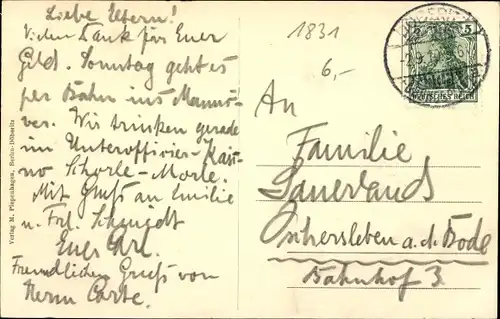 Liebe Eltern!
Vielen Dank für Euer
Geld. Sonntag geht es
per Bahn ins Mannö-
ver. Wir trinken gerade
im Unteroffizier-Kasi-
no Schorle-Morle.
Mit Gruß an Emilie
u. Frl.
Euer
Freundlichen Gruß von
Herm
1831
6,-
5 5
DEUTSCHES REICH
An
Familie
Sauerland
Oschersleben a. d. Bode
Bahnhof 3
Verlag M. Piepenhagen, Buchn.-Döberitz